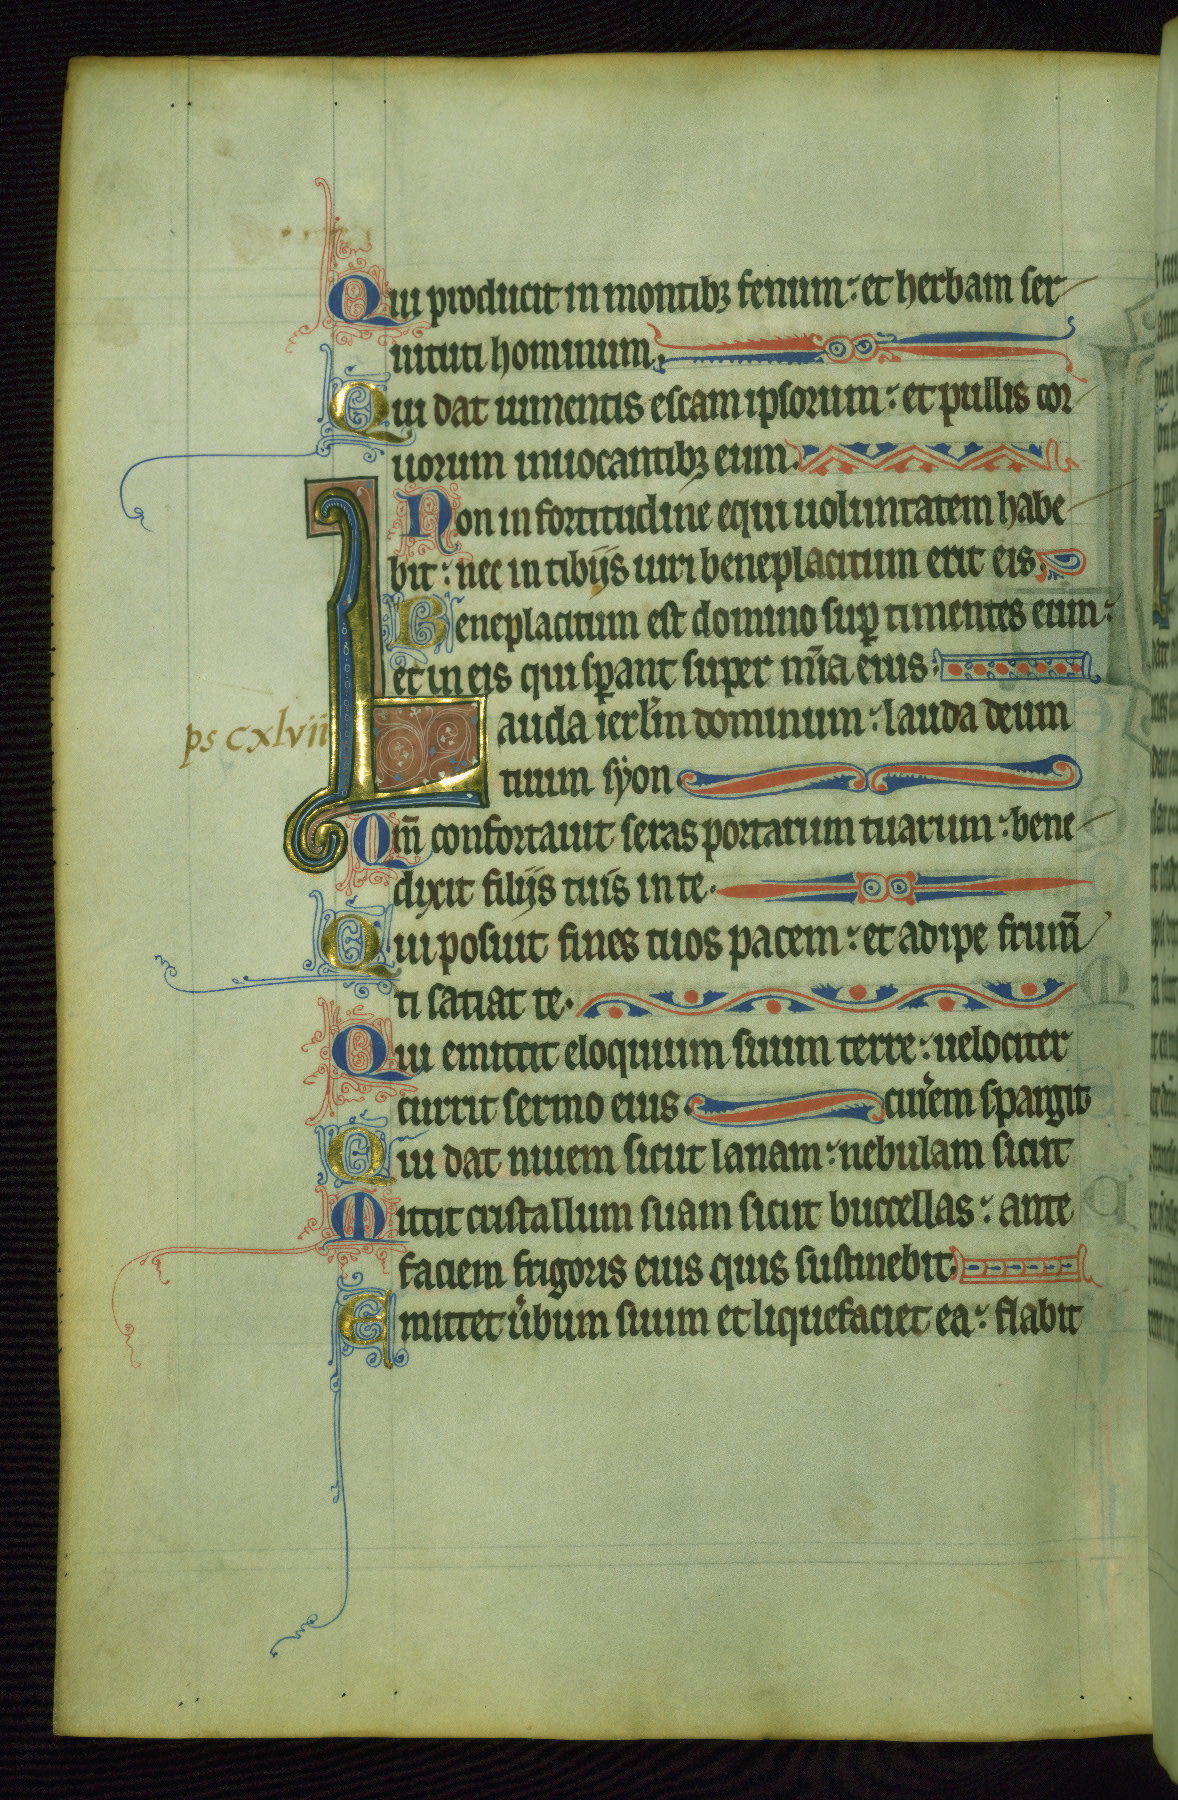 Qui producit in montibꝫ fenum: et herbam ser
uituti hominum.
Qui dat iumentis escam ipsorum: et pullis cor
uorum inuocantibꝫ eum.
Non in fortitudine equi uoluntatem habe
bit: nec in tibijs uiri beneplacitum erit eis.
Beneplacitum est domino suꝑ timentes eum:
et in eis qui sꝑant super mīa eius:
ps cxlvii
Lauda ierlm̄ dominum: lauda deum
tuum syon.
Qm̄ confortauit seras portarum tuarum: bene
dixit filijs tuis in te.
Qui posuit fines tuos pacem: et adipe frum̄
ti satiat te.
Qui emittit eloquium suum terre: uelociter
currit sermo eius. cin̾em spargit
Qui dat niuem sicut lanam: nebulam sicut
Mittit cristallum suam sicut buccellas: ante
faciem frigoris eius quis sustinebit.
Emittet u̾bum suum et liquefaciet ea: flabit